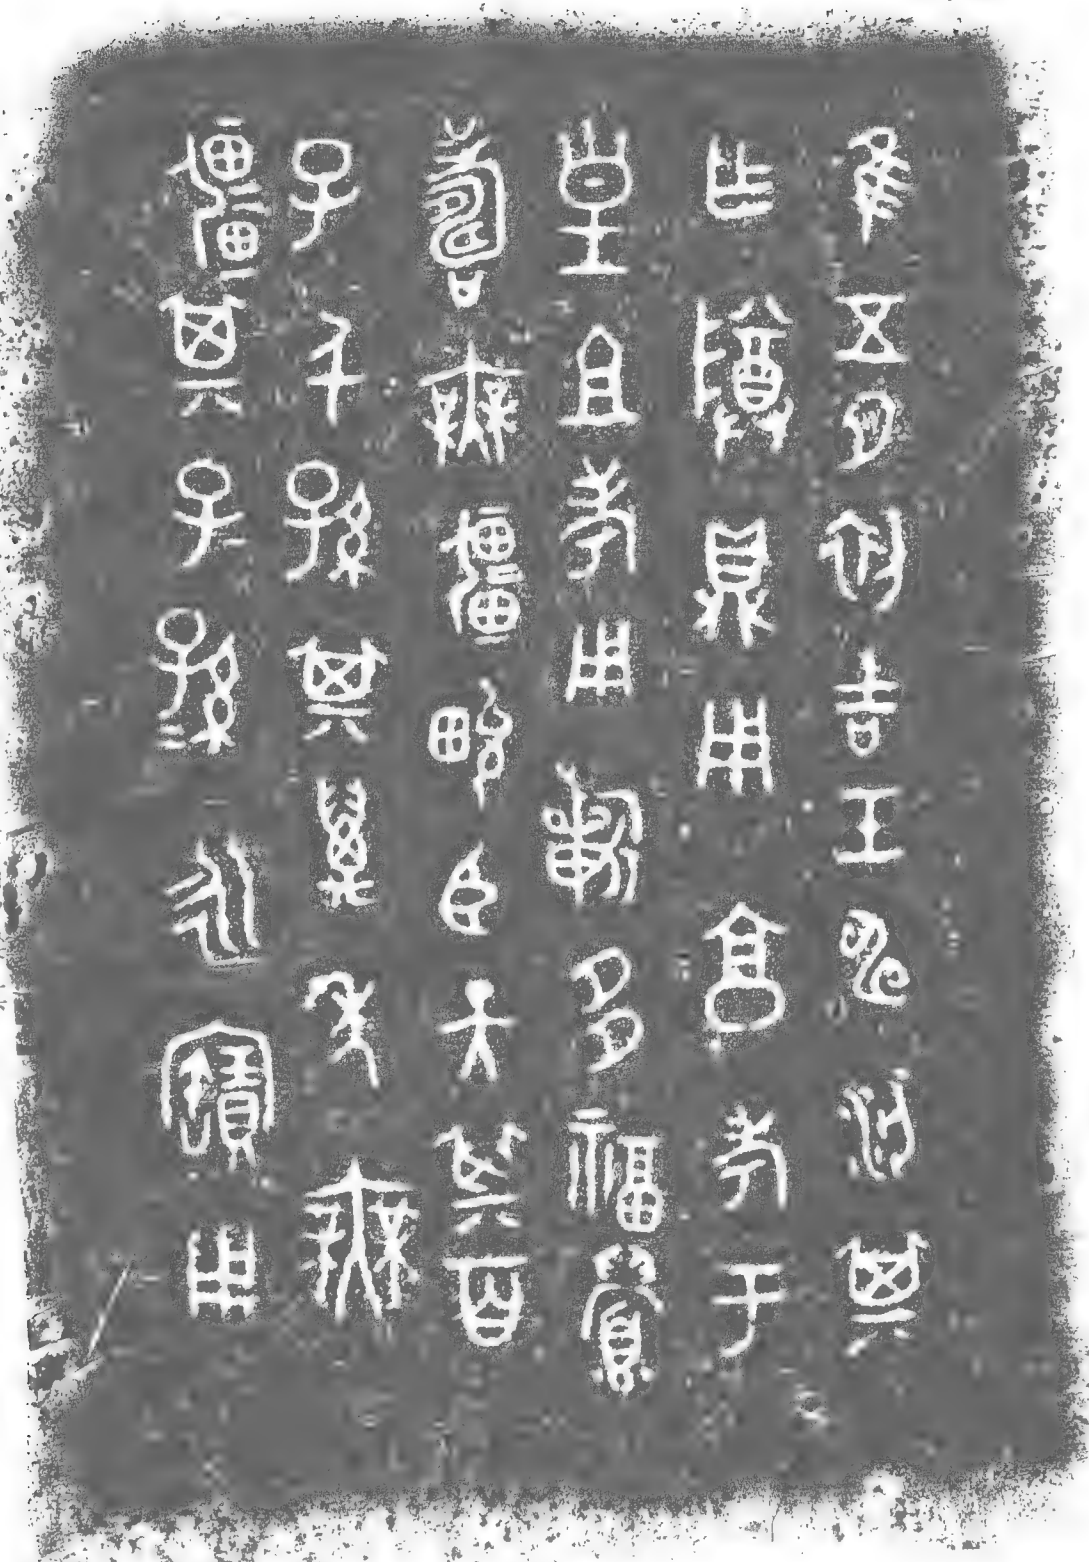 隹五月初吉壬申梁其
乍䵼鼎用亯考于
皇且考用𣄨多福眉
壽無疆畯臣天其百
子千孫其萬年無
疆其子=孫=永寶用